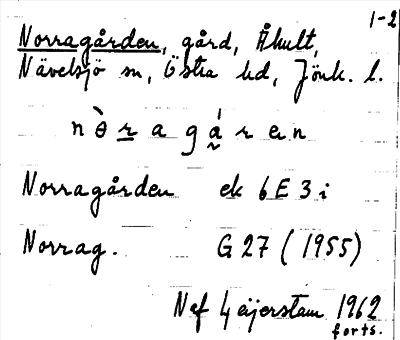 1-2
Norragården, gård, Åhult,
Nävelsjö sn, Östra hd, Jönk. l.
nòragáren
Norragården ek 6E 3i
Norrag. G 27 (1955)
Nef 1962
forts.